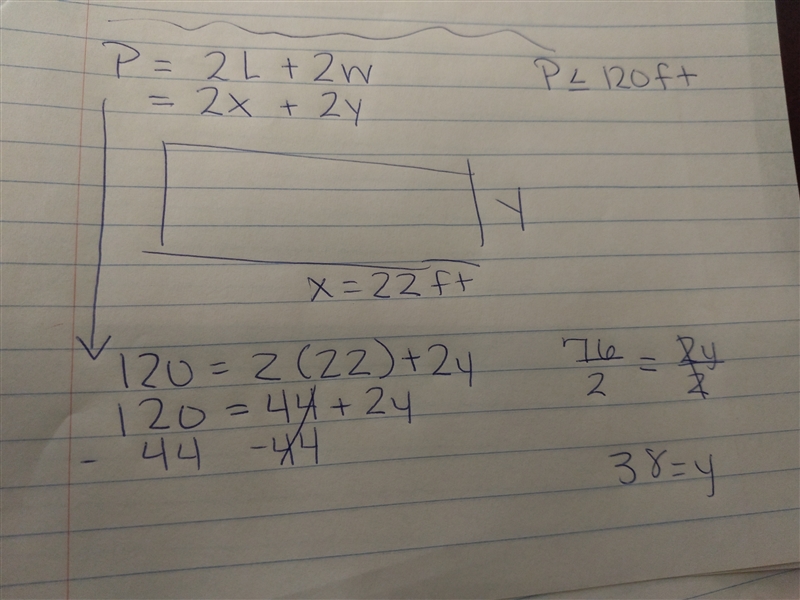 P = 2L + 2W
= 2x + 2y
P ≤ 120ft
y
x = 22ft
120 = 2(22) + 2y
120 = 44 + 2y
- 44 -44
76/2 = 2y/2
38 = y